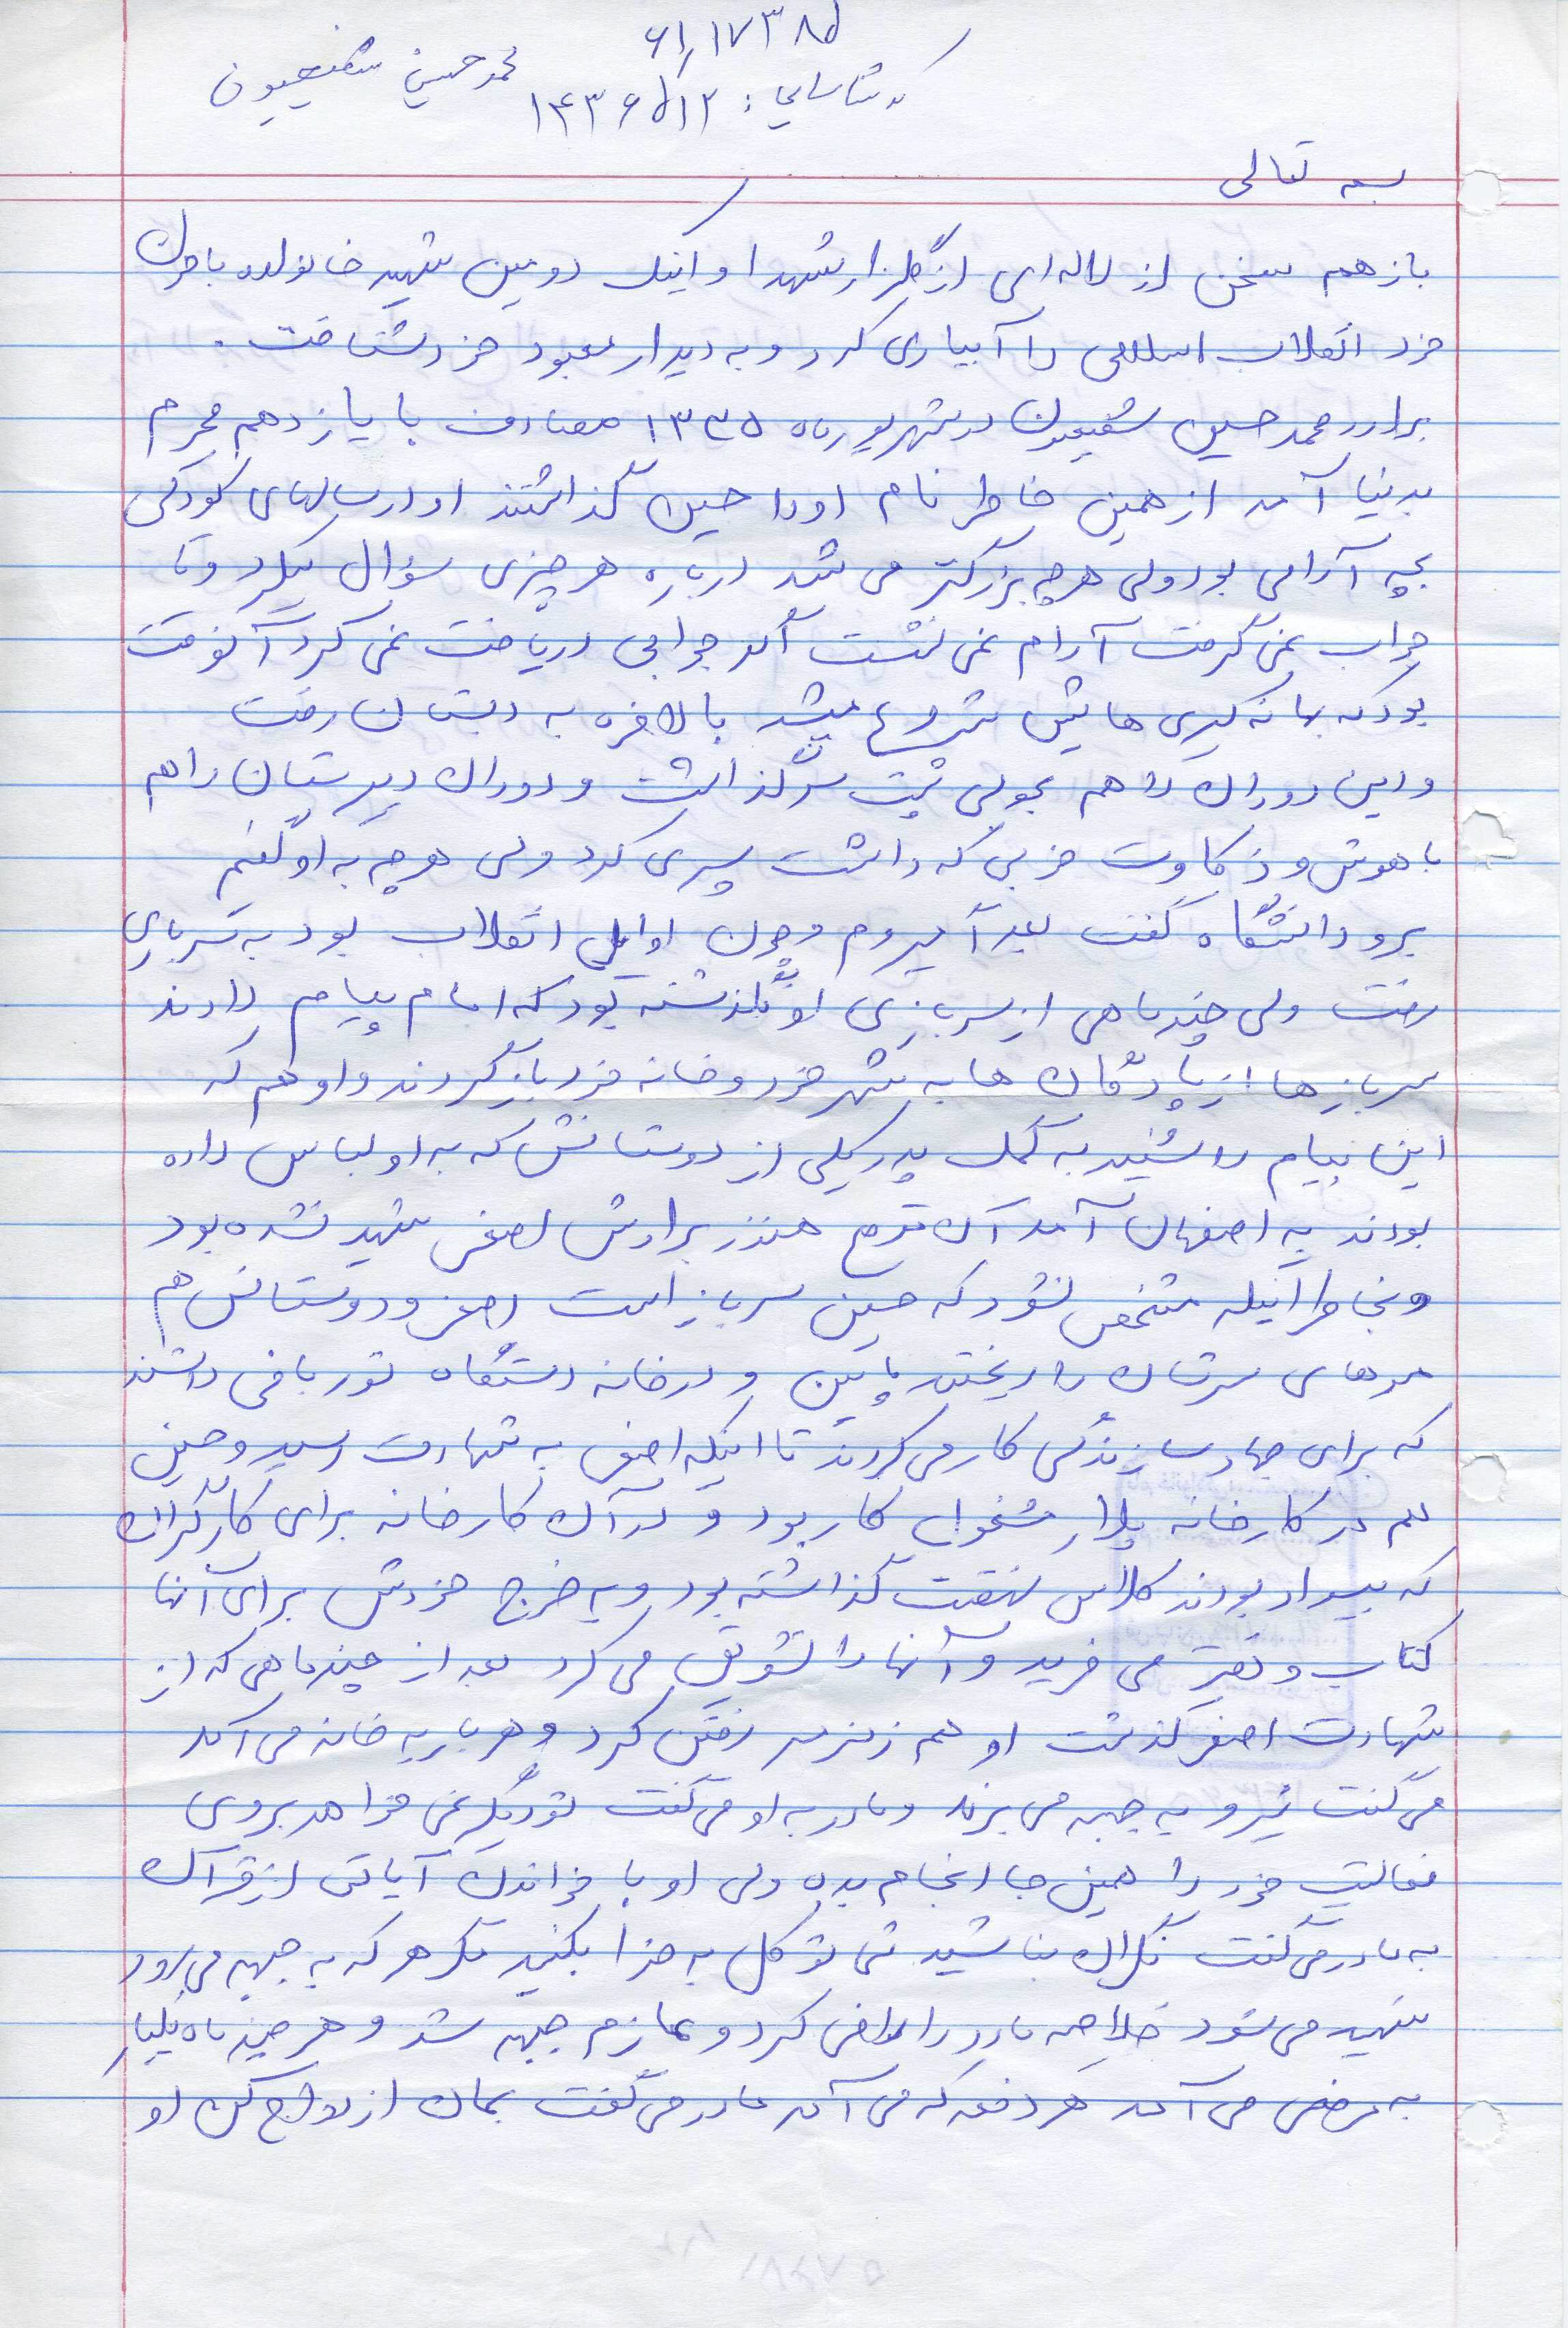 ۶۱٫۱۷۳۸۵
کد شناسایی: ۱۴۳۶۵۱۲ محمدحسین شفیعیون
بسمه تعالی
باز هم سخن از لاله‌ای از گلزار شهدا و اینک دومین شهید خانواده با خون
خود انقلاب اسلامی را آبیاری کرد و به دیدار معبود خود شتافت.
برادر محمد حسین شفیعیون در شهریور ماه ۱۳۳۵ مصادف با یازدهم محرم
بدنیا آمد از همین خاطر نام او را حسین گذاشتند او در سالهای کودکی
بچه آرامی بود ولی هر چه بزرگتر می شد درباره هر چیزی سؤال میکرد و تا
جواب نمی گرفت آرام نمی نشست اگر جوابی دریافت نمی کرد آنوقت
بود که بهانه گیری هایش شروع میشد بالاخره به دبستان رفت
و این دوران را هم بخوبی پشت سر گذاشت و دوران دبیرستان را هم
با هوش و ذکاوت خوبی که داشت سپری کرد ولی هر چه به او گفتم
برو دانشگاه گفت بعداً میروم و چون اوایل انقلاب بود به سربازی
رفت ولی چند ماهی از سربازی او نگذشته بود که امام پیام دادند
سربازها از پادگان ها به شهر خود و خانه خود بازگردند و او هم که
این پیام را شنید به کمک پدر یکی از دوستانش که به او لباس داده
بودند به اصفهان آمد آن موقع هنوز برادرش اصغر شهید نشده بود
و بخاطر اینکه مشخص نشود که حسین سرباز است اصغر و دوستانش هم
موهای سرشان را ریختند پایین و در خانه دستگاه توربافی داشتند
که برای جهاد سازندگی کار می کردند تا اینکه اصغر به شهادت رسید و حسین
هم در کارخانه پلار مشغول کار بود و در آن کارخانه برای کارگران
که بیسواد بودند کلاس نهضت گذاشته بود و به خرج خودش برای آنها
کتاب و دفتر می خرید و آنها را تشویق می کرد بعد از چند ماهی که از
شهادت اصغر گذشت او هم زمزمه رفتن کرد و هر بار به خانه می آمد
می گفت نیرو به جبهه می برند و مادر به او می گفت تو دیگر نمی خواهد بروی
فعالیت خود را همین جا انجام بده ولی او با خواندن آیاتی از قرآن
به مادر می گفت نگران نباشید شما توکل به خدا بکنید مگر هر که به جبهه می رود
شهید می شود خلاصه مادر را راضی کرد و عازم جبهه شد و هر چند ماه یکبار
به مرخصی می آمد هر دفعه که می آمد مادر می گفت بمان ازدواج کن او